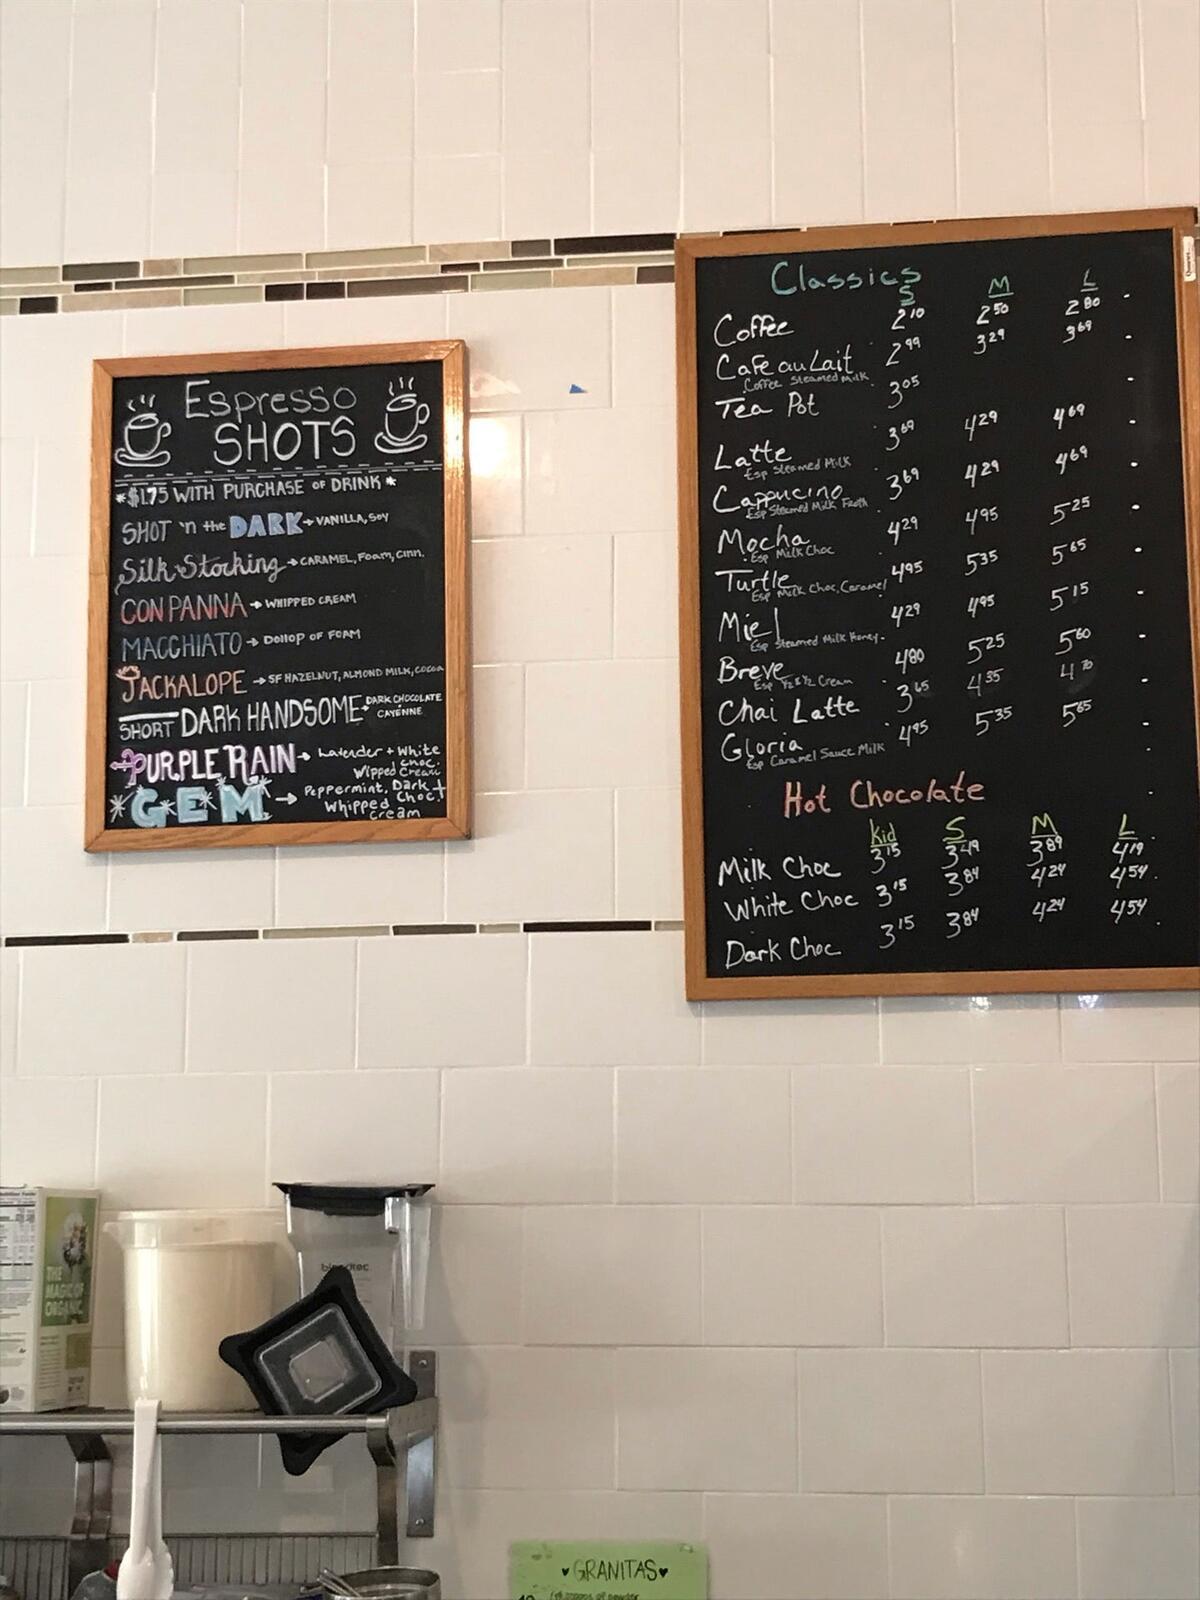 Espresso
SHOTS
*$1.75 WITH PURCHASE OF DRINK*
SHOT 'n the DARK → VANILLA, SOY
Silk Stocking → CARAMEL, Foam, CINN.
CON PANNA → WHIPPED CREAM
MACCHIATO → Dollop of FOAM
JACKALOPE → SF HAZELNUT, ALMOND MILK, COCOA
SHORT DARK HANDSOME → DARK CHOCOLATE
CAYENNE
PURPLE RAIN → Lavender + White
choc.
Wipped Cream
*GEM* → Peppermint, Dark +
Whipped Choc!
cream
Classics
S M L
Coffee 2.10 2.50 2.80
Cafe au Lait 2.99 3.29 3.69
Coffee Steamed Milk
Tea Pot 3.05
Latte 3.69 4.29 4.69
Esp Steamed Milk
Cappucino 3.69 4.29 4.69
Esp Steamed Milk Froth
Mocha 4.29 4.95 5.25
Esp Milk Choc
Turtle 4.95 5.35 5.65
Esp Milk Choc, Caramel
Miel 4.29 4.95 5.15
Esp Steamed Milk Honey
Breve 4.80 5.25 5.60
Esp 1/2 & 1/2 Cream
Chai Latte 3.65 4.35 4.70
Gloria 4.95 5.35 5.65
Esp Caramel Sauce Milk
Hot Chocolate
Kid S M L
Milk Choc 3.15 3.49 3.89 4.19
White Choc 3.15 3.84 4.24 4.54
Dark Choc 3.15 3.84 4.24 4.54
THE
MAGIC OF
ORGANIC
blendtec
♥GRANITAS♥